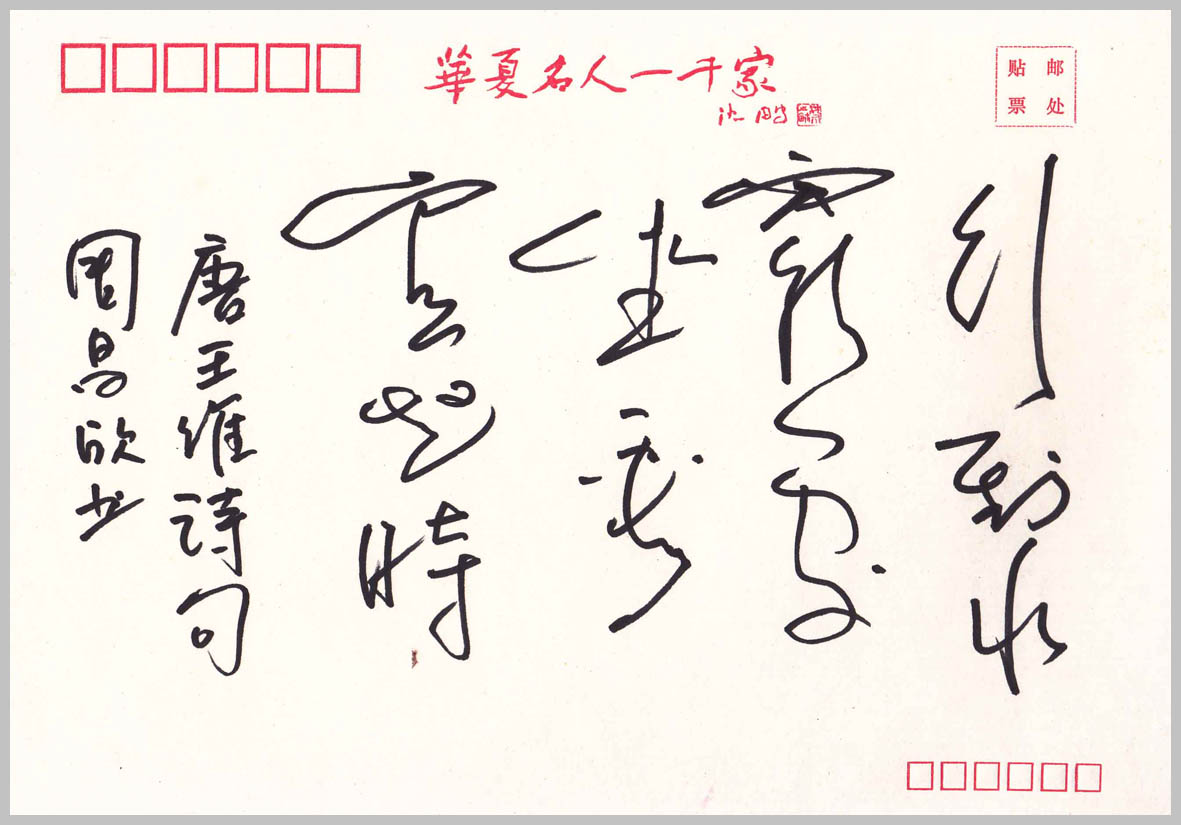 華夏名人一千家
沈鹏
贴邮
票处
行到水
窮處
坐看
雲起時
唐王维诗句
周昌欣书